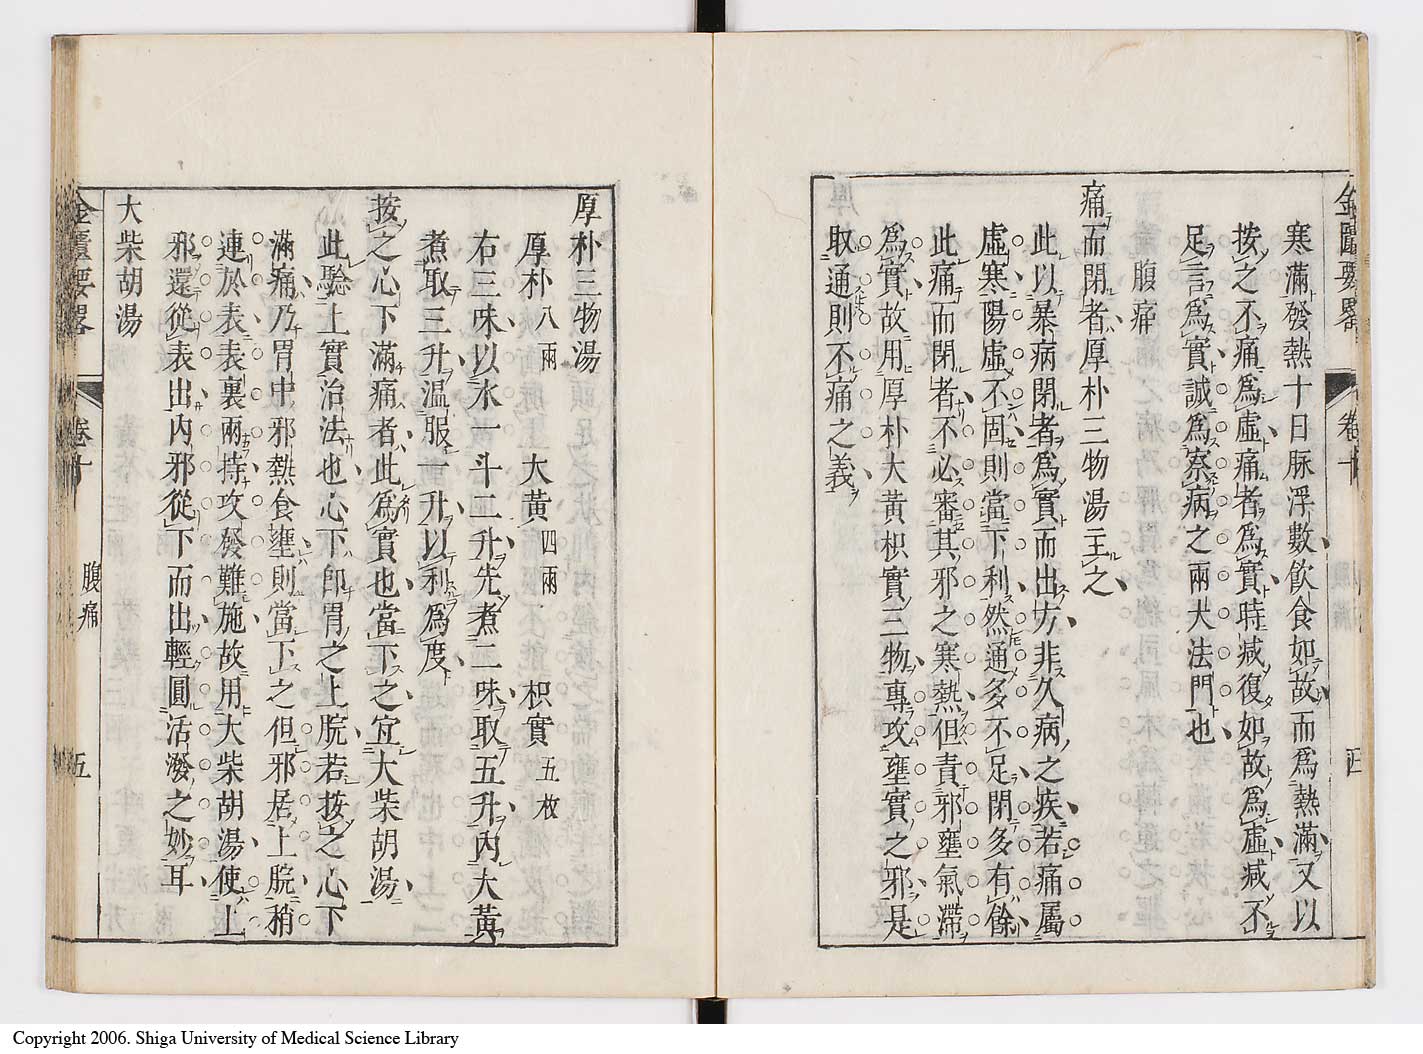 金匱要畧 卷十 四
寒滿發熱十日脉浮數飮食如故而爲熱滿又以
按之不痛爲虛痛者爲實時減復如故爲虛減不
足言爲實誠爲察病之兩大法門也
腹痛
痛而閉者厚朴三物湯主之
此以暴病閉者爲實而出方非久病之疾若痛屬
虛寒陽虛不固則當下利然通多不足閉多有餘
此痛而閉者不必審其邪之寒熱但責邪壅氣滯
爲實故用厚朴大黃枳實三物專攻壅實之邪是
取通則不痛之義
厚朴三物湯
厚朴八兩 大黃四兩 枳實五枚
右三味以水一斗二升先煮二味取五升內大黃
煮取三升温服一升以利爲度
按之心下滿痛者此爲實也當下之宜大柴胡湯
此驗上實治法也心下卽胃之上脘若按之心下
滿痛乃胃中邪熱食壅則當下之但邪居上脘稍
連於表表裏兩持攻發難施故用大柴胡湯使上
邪還從表出內邪從下而出輕圓活潑之妙耳
大柴胡湯
金匱要畧 卷十 腹痛 五
Copyright 2006. Shiga University of Medical Science Library